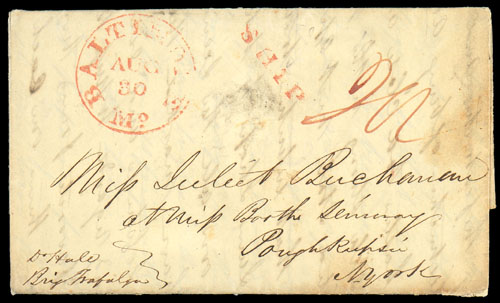 BALTIMORE
AUG
30
Md
SHIP
Miss Juliet Buchanan
at Miss Booths Seminary
Poughkeepsie
N york
Dr Hale
Brig Trafalgar